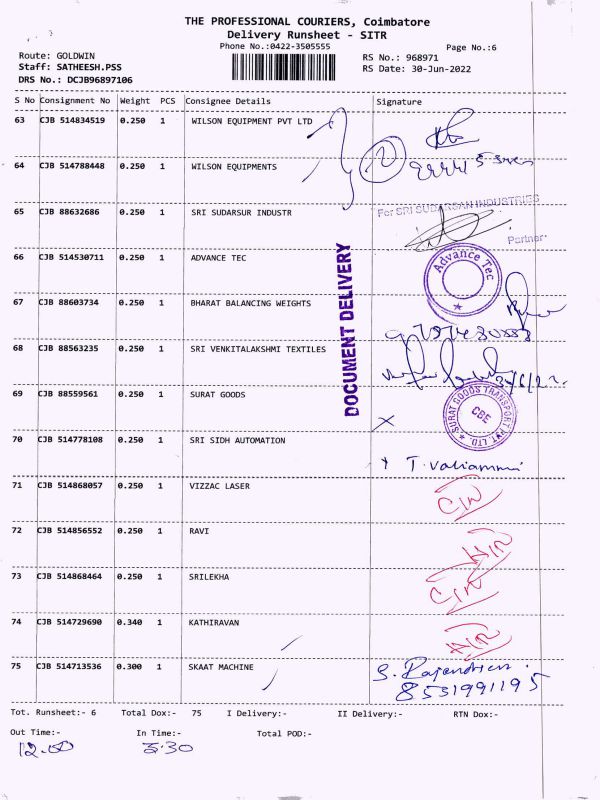 THE PROFESSIONAL COURIERS, Coimbatore
Delivery Runsheet - SITR
Phone No.:0422-3505555
Page No.:6
Route: GOLDWIN
RS No.: 968971
Staff: SATHEESH.PSS
RS Date: 30-Jun-2022
DRS No.: DCJB96897106
S No Consignment No Weight PCS Consignee Details Signature
63 CJB 514834519 0.250 1 WILSON EQUIPMENT PVT LTD
64 CJB 514788448 0.250 1 WILSON EQUIPMENTS
For SRI SUDARSAN INDUSTRIES
65 CJB 88632686 0.250 1 SRI SUDARSUR INDUSTR
Partner
66 CJB 514530711 0.250 1 ADVANCE TEC
Advance Tec
DOCUMENT DELIVERY
67 CJB 88603734 0.250 1 BHARAT BALANCING WEIGHTS
68 CJB 88563235 0.250 1 SRI VENKITALAKSHMI TEXTILES
69 CJB 88559561 0.250 1 SURAT GOODS
SURAT GOODS TRANSPORT PVT LTD.
CBE
70 CJB 514778108 0.250 1 SRI SIDH AUTOMATION
T. Valiammi
71 CJB 514868057 0.250 1 VIZZAC LASER
72 CJB 514856552 0.250 1 RAVI
73 CJB 514868464 0.250 1 SRILEKHA
74 CJB 514729690 0.340 1 KATHIRAVAN
75 CJB 514713536 0.300 1 SKAAT MACHINE
S. Rajendren
8531991195
Tot. Runsheet:- 6 Total Dox:- 75 I Delivery:- II Delivery:- RTN Dox:-
Out Time:- In Time:- Total POD:-
12.00 5.30